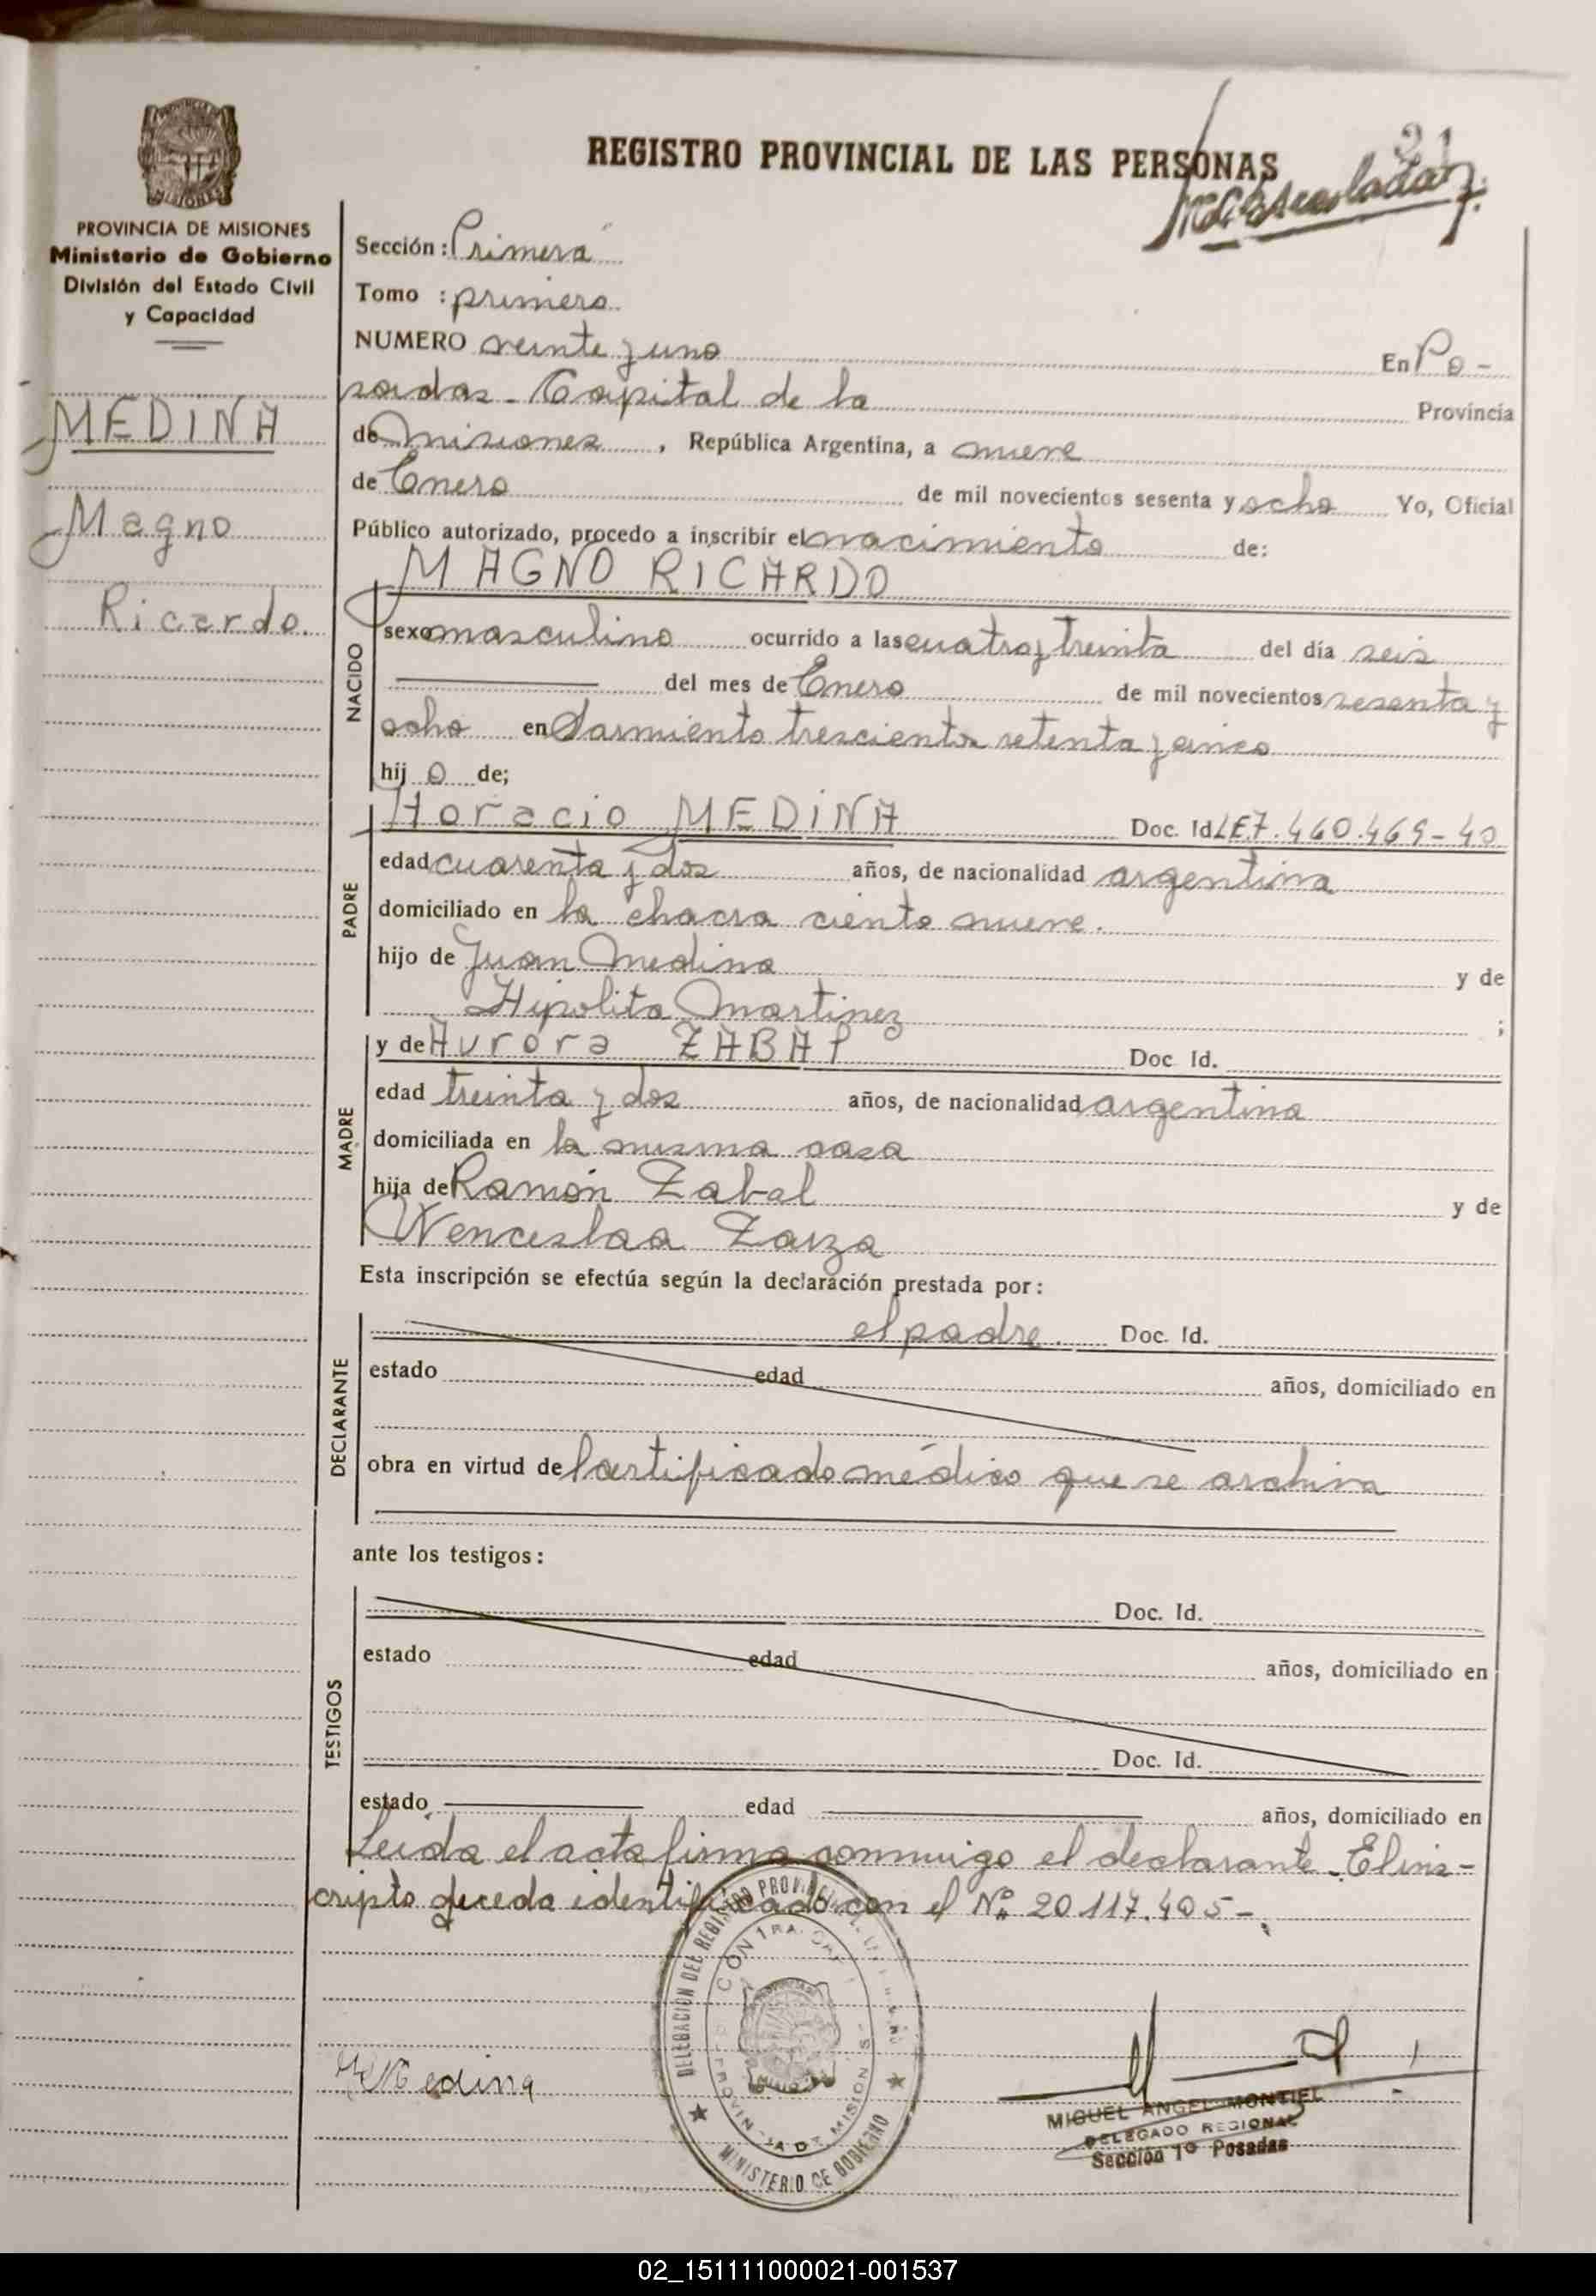 21
REGISTRO PROVINCIAL DE LAS PERSONAS
PROVINCIA DE MISIONES
Ministerio de Gobierno
División del Estado Civil
y Capacidad
MEDINA
Magno
Ricardo.
Sección: Primera
Tomo : primero.
NUMERO veinte y uno En Po-
sadas - Capital de la Provincia
de Misiones, República Argentina, a nueve
de Enero de mil novecientos sesenta y ocho Yo, Oficial
Público autorizado, procedo a inscribir el nacimiento de:
NACIDO
MAGNO RICARDO
sexo masculino ocurrido a las cuatro y treinta del día seis
del mes de Enero de mil novecientos sesenta y
ocho en Sarmiento trescientos setenta y cinco
hijo de;
PADRE
Horacio MEDINA Doc. Id. LE7.460.469-40
edad cuarenta y dos años, de nacionalidad argentina
domiciliado en la chacra ciento nueve.
hijo de Juan Medina y de
Hipolita Martinez ;
MADRE
y de Aurora ZABAL Doc. Id.
edad treinta y dos años, de nacionalidad argentina
domiciliada en la misma casa
hija de Ramón Zabal y de
Wenceslaa Zarza
Esta inscripción se efectúa según la declaración prestada por:
DECLARANTE
el padre. Doc. Id.
estado edad años, domiciliado en
obra en virtud de certificado médico que se archiva
ante los testigos:
TESTIGOS
Doc. Id.
estado edad años, domiciliado en
Doc. Id.
estado edad años, domiciliado en
Leida el acta firma conmigo el declarante. El ins-
cripto queda identificado con el Nº 20.117.405-.
DELEGACION DEL REGISTRO PROVINCIAL
PROVINCIA DE MISIONES
MINISTERIO DE GOBIERNO
Medina
MIGUEL ANGEL MONTIEL
DELEGADO REGIONAL
Sección 1º Posadas
02_151111000021-001537